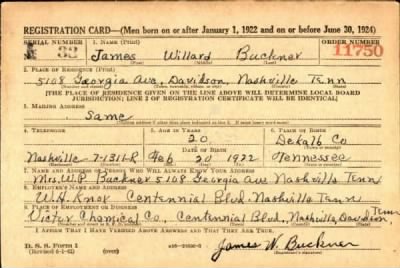 REGISTRATION CARD—(Men born on or after January 1, 1922 and on or before June 30, 1924)
SERIAL NUMBER 1. NAME (Print) ORDER NUMBER
N 82 James Willard Buckner 11750
(First) (Middle) (Last)
2. PLACE OF RESIDENCE (Print)
5108 Georgia Ave, Davidson, Nashville Tenn
(Number and street) (Town, township, village, or city) (County) (State)
[THE PLACE OF RESIDENCE GIVEN ON THE LINE ABOVE WILL DETERMINE LOCAL BOARD
JURISDICTION; LINE 2 OF REGISTRATION CERTIFICATE WILL BE IDENTICAL]
3. MAILING ADDRESS
Same
4. TELEPHONE 5. AGE IN YEARS 6. PLACE OF BIRTH
20 Dekalb Co
DATE OF BIRTH
Nashville 7-1311-R Feb 20 1922 Tennessee
7. NAME AND ADDRESS OF PERSON WHO WILL ALWAYS KNOW YOUR ADDRESS
Mrs. W.P. Buckner 5108 Georgia Ave Nashville Tenn
8. EMPLOYER'S NAME AND ADDRESS
W.H. Knox Centennial Blvd. Nashville Tenn
9. PLACE OF EMPLOYMENT OR BUSINESS
Victor Chemical Co., Centennial Blvd, Nashville, Davidson, Tenn
(Number and street or R. F. D. number) (Town) (County) (State)
I AFFIRM THAT I HAVE VERIFIED ABOVE ANSWERS AND THAT THEY ARE TRUE.
D. S. S. Form 1
(Revised 6-1-42) (over)
James W. Buckner
(Registrant's signature)